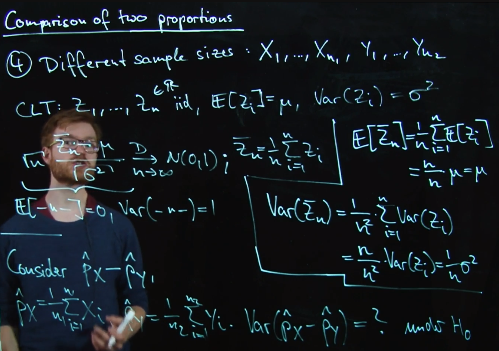 Comparison of two proportions
④ Different sample sizes : X₁, ..., Xₙ₁, Y₁, ..., Yₙ₂
CLT: Z₁, ..., Zₙ ∈ℝ iid, E[Zᵢ] = μ, Var(Zᵢ) = σ²
√n (Z̄ₙ - μ)/√σ² →ᴰ n→∞ N(0,1) ; Z̄ₙ = 1/n Σᵢ₌₁ⁿ Zᵢ
E[-"-] = 0, Var(-"-) = 1
E[Z̄ₙ] = 1/n Σᵢ₌₁ⁿ E[Zᵢ]
= n/n μ = μ
Var(Z̄ₙ) = 1/n² · Σᵢ₌₁ⁿ Var(Zᵢ)
= n/n² · Var(Zᵢ) = 1/n σ²
Consider p̂X - p̂Y,
p̂X = 1/n₁ Σᵢ₌₁ⁿ¹ Xᵢ, p̂Y = 1/n₂ Σᵢ₌₁ⁿ² Yᵢ. Var(p̂X - p̂Y) = ? under H₀